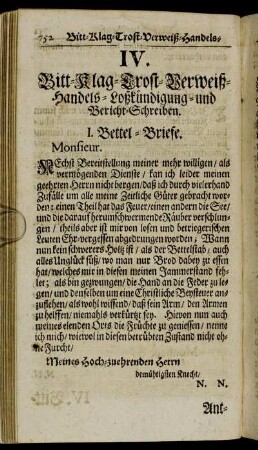 752 Bitt-Klag-Trost-Verweiß-Handels-
IV.
Bitt-Klag-Trost-Verweiß-
Handels-Loßkündigung-und
Bericht-Schreiben.
I. Bettel-Briefe.
Monsieur.
NEchst Bereitstellung meiner mehr willigen/ als
vermögenden Dienste/ kan ich leider meinen
geehrten Herrn nicht bergen/ daß ich durch vielerhand
Zufälle um alle meine Zeitliche Güter gebracht wor-
den: einen Theil hat das Feuer/ einen andern die See/
und die darauf herum schwermende Räuber verschlun-
gen/ theils aber ist mir von losen und betriegerischen
Leuten Ehr-vergessen abgedrungen worden/ Wann
nun kein schwerers Holtz ist/ als der Bettelstab/ auch
alles Unglück süß/ wo man nur Brod dabey zu essen
hat/ welches mir in diesen meinen Jammerstand feh-
let; als bin gezwungen/ die Hand an die Feder zu le-
gen/ und denselben um eine Christliche Beysteuer an-
zuflehen/ als wohl wissend/ daß sein Arm/ den Armen
zu helffen/ niemahls verkürtzt sey. Hievon nun auch
meines elenden Orts die Früchte zu geniessen/ nenne
ich mich/ wiewol in diesen betrübten Zustand nicht oh-
ne Furcht/
Meines Hoch-zuehrenden Herrn
demühtigsten Knecht/
N. N.
Ant-